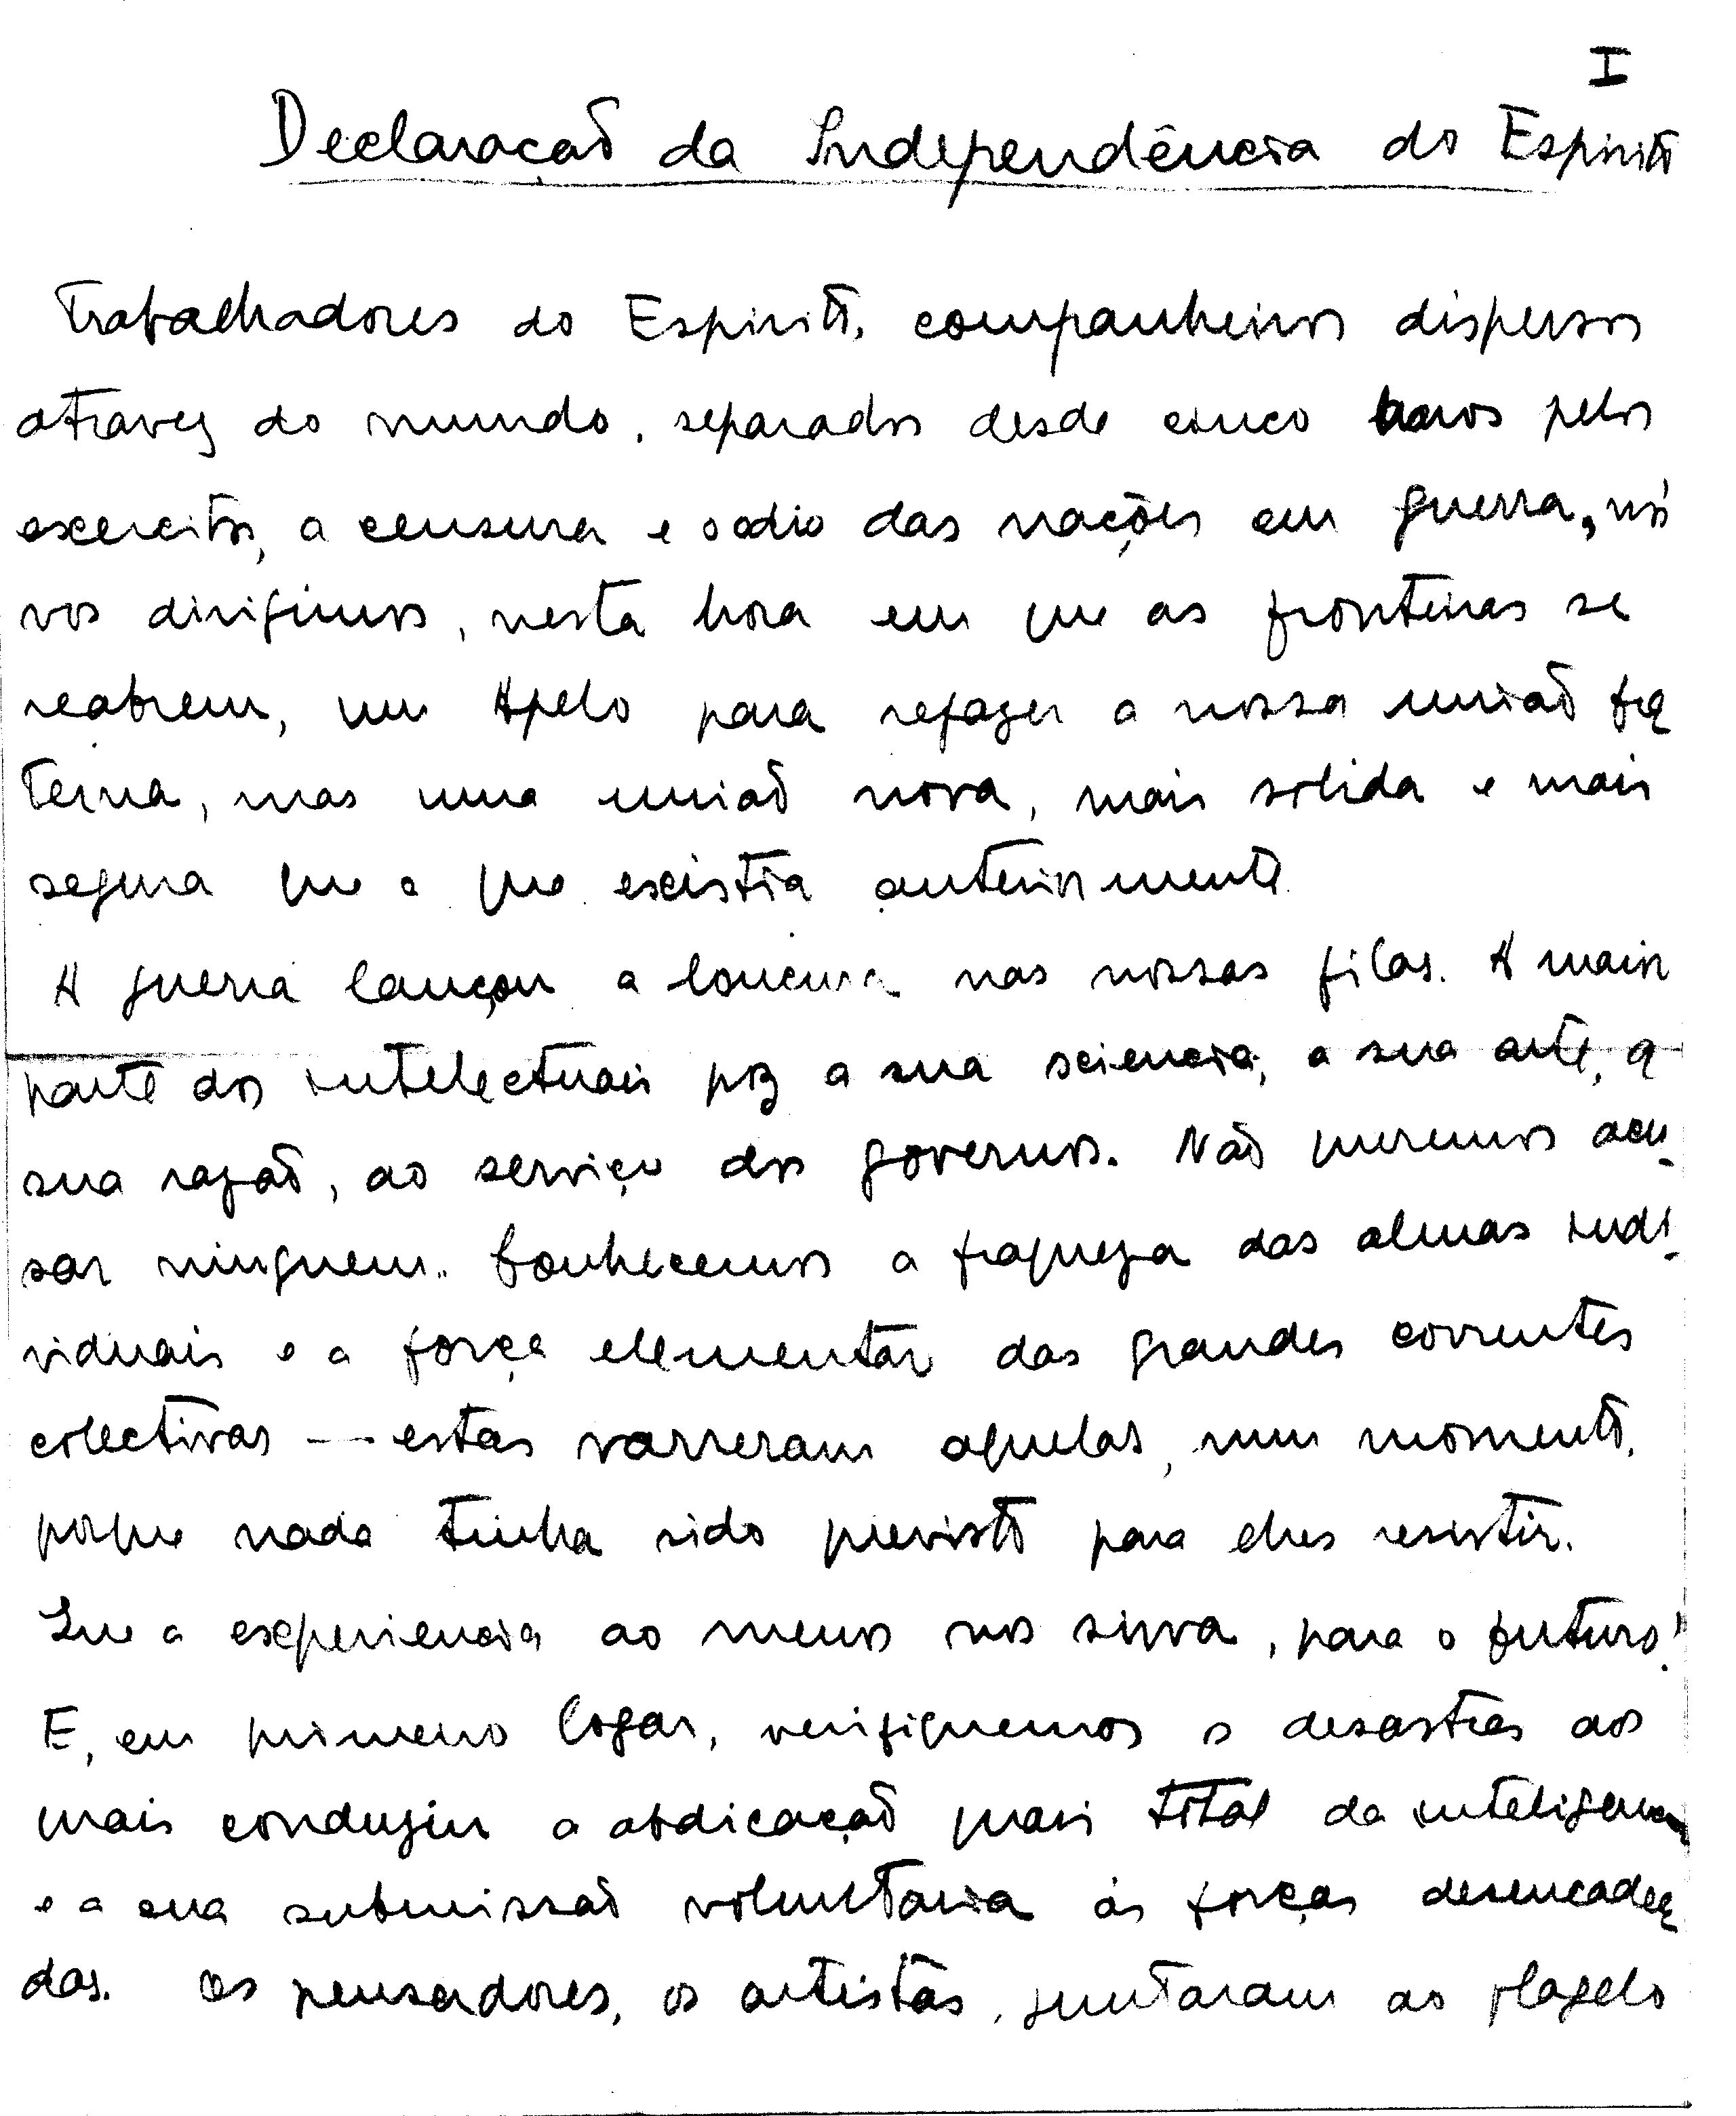 I
Declaração da Independência do Espirito
Trabalhadores do Espirito, companheiros dispersos
atravez do mundo, separados desde cinco anos pelos
exercitos, a censura e o odio das nações em guerra, nós
vos dirigimos, nesta hora em que as fronteiras se
reabrem, um Apelo para refazer a nossa união fra
terna, mas uma união nova, mais solida e mais
segura que a que existia anteriormente.
A guerra lançou a loucura nas nossas filas. A maior
parte dos intelectuais poz a sua sciencia, a sua arte, a
sua razão, ao serviço dos governos. Não queremos acu-
sar ninguem. Conhecemos a fraqueza das almas indi-
viduais e a força elementar das grandes correntes
colectivas — estas varreram aquelas, num momento,
porque nada tinha sido previsto para lhes resistir.
Que a experiencia ao menos nos sirva, para o futuro!
E, em primeiro logar, verifiquemos o desastres aos
quais conduziu a abdicação quasi total da inteligencia
e a sua submissão voluntaria ás forças desencadea
das. Os pensadores, os artistas, juntaram ao flagelo